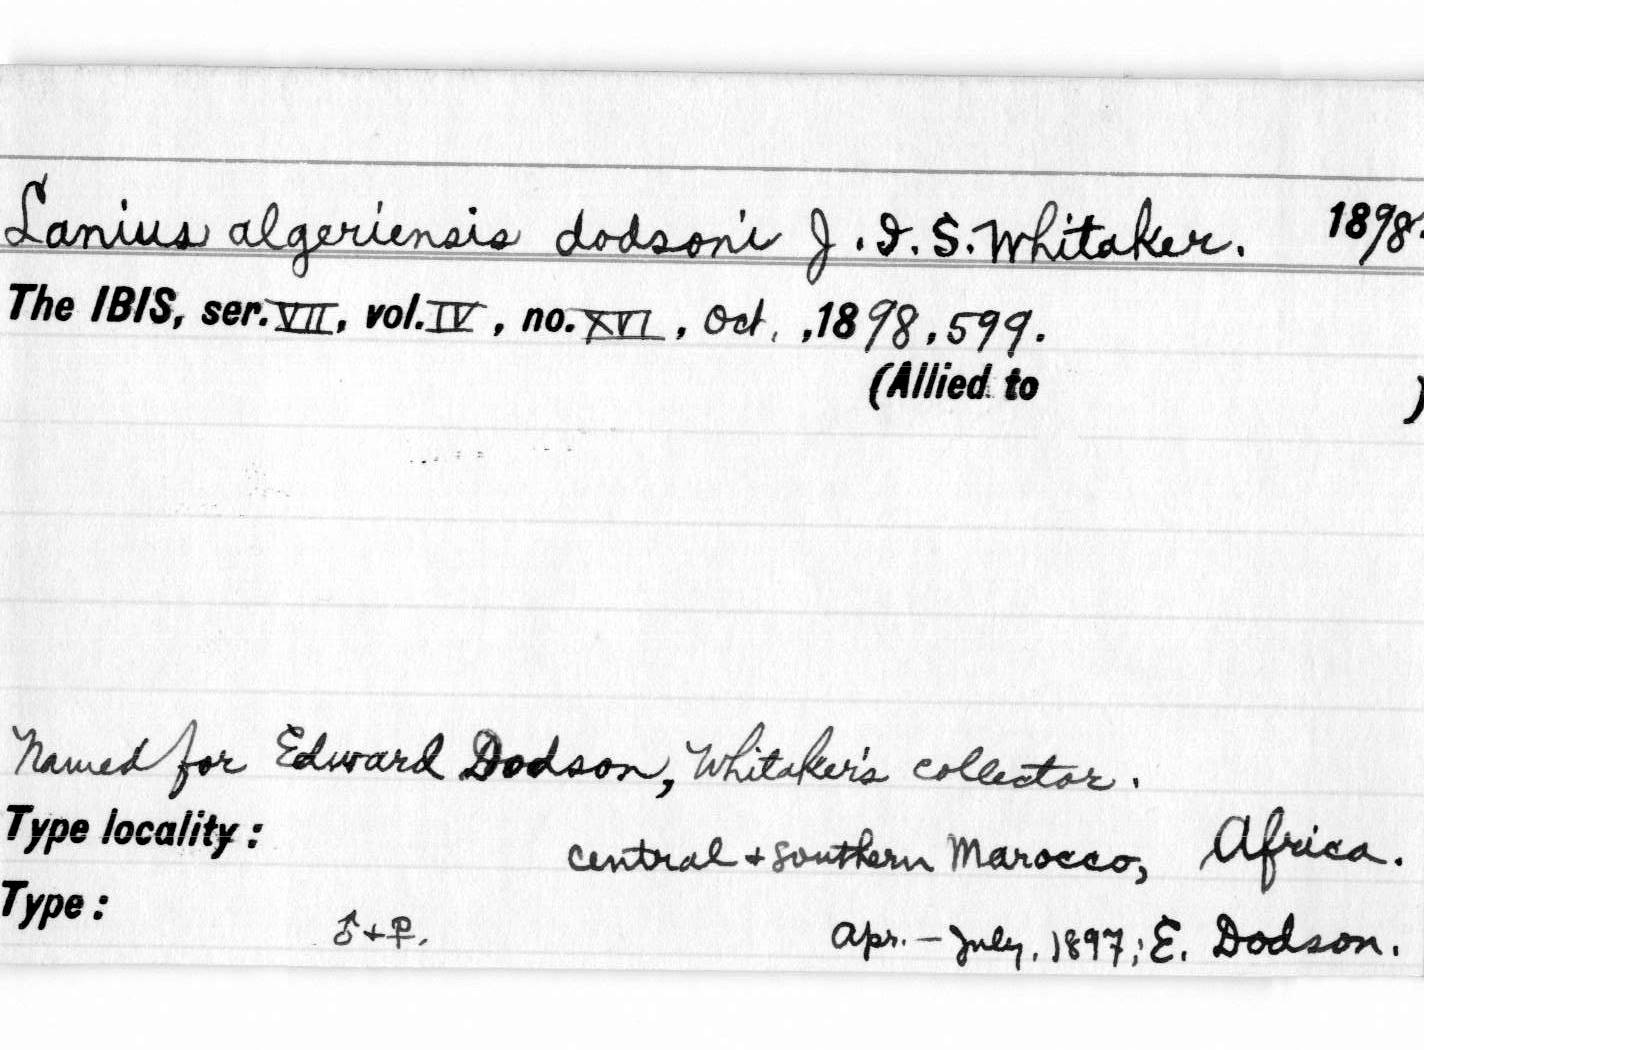 Lanius algeriensis dodsoni J. I. S. Whitaker. 1898.
The IBIS, ser. VII, vol. IV, no. XVI, Oct. ,1898, 599.
(Allied to )
Named for Edward Dodson, Whitaker's collector.
Type locality: central + southern Marocco, Africa.
Type: ♂ + ♀. Apr. – July, 1897; E. Dodson.